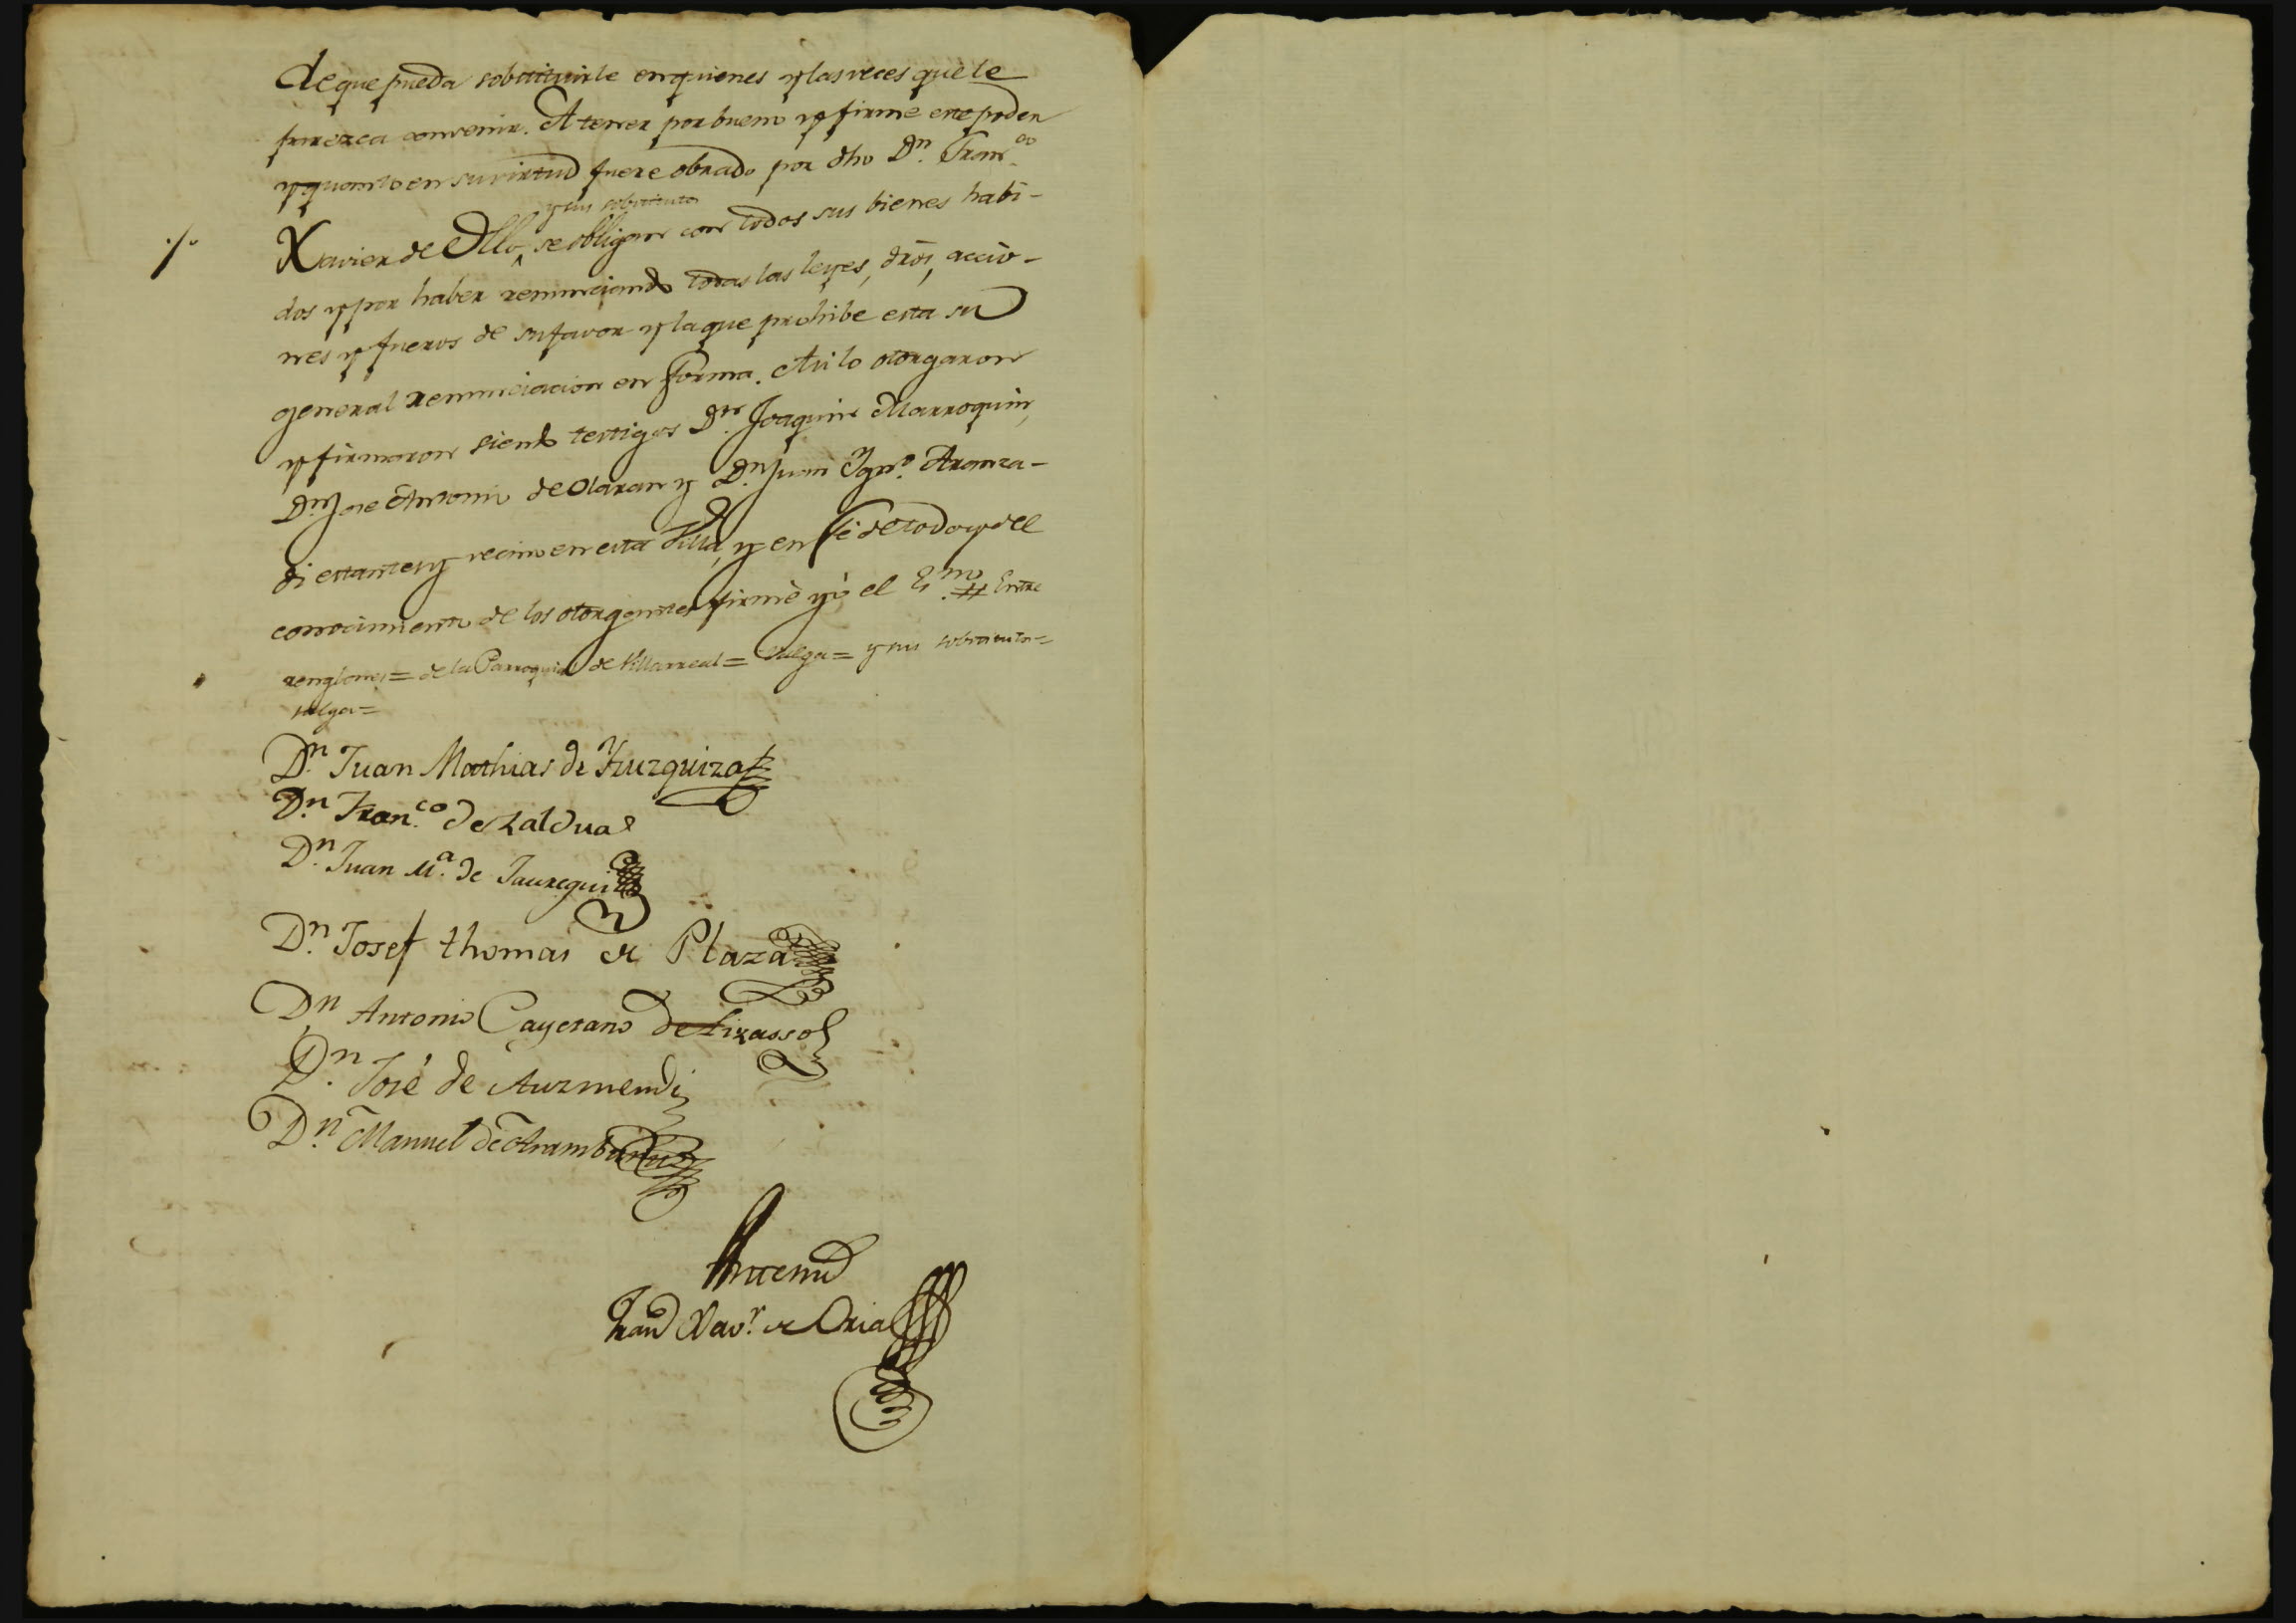 de que pueda sobstituirle en quienes y las veces que le
parezca convenir. A tener por bueno y firme este poder
y quanto en su virtud fuere obrado por dho Dn. Franco.
y sus sobstitutos
Xavier de Ollo, se obligan con todos sus bienes habi-
dos y por haber renunciando todas las leyes, dros, accio-
nes y fueros de su favor y la que prohibe esta su
general renunciacion en forma. Asi lo otorgaron
y firmaron siendo testigos Dn. Joaquin Marroquin,
Dn. Jose Antonio de Olaran y Dn. Juan Ygno. Aranza-
di estantes y vecino en esta Villa, y en fé de todo y del
conocimiento de los otorgantes firmè yò el Esno. # Entre
renglones = de la Parroquial de Villarreal = valga = y sus sobstitutos =
valga =
Dn. Juan Mathias de Yzuzquiza
Dn. Franco. de Zaldua
Dn. Juan Ma. de Jauregui
Dn. Josef thomas de Plaza
Dn Antonio Cayetano de Lizasso
Dn. José de Auzmendi
Dn. Manuel de Aramburu
Ante mi
Xavr. de Oria